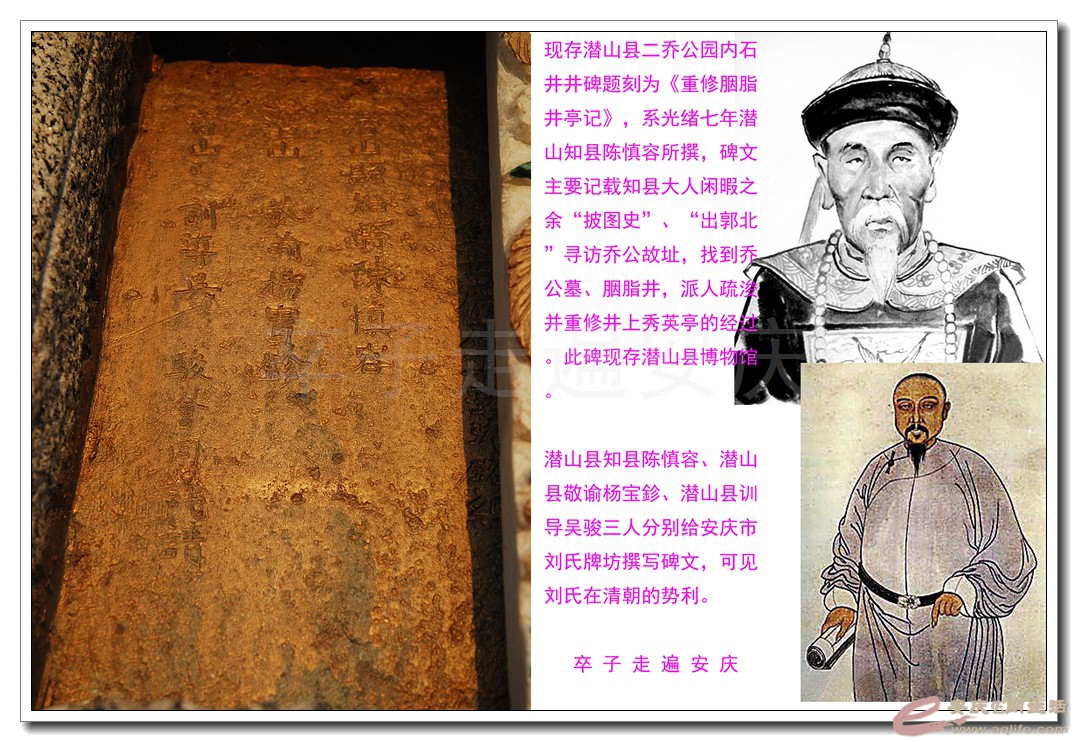 山縣知縣陳慎容
教諭楊寶
訓導吳駿會同詳請
现存潜山县二乔公园内石
井井碑题刻为《重修胭脂
井亭记》，系光绪七年潜
山知县陈慎容所撰，碑文
主要记载知县大人闲暇之
余“披图史”、“出郭北
”寻访乔公故址，找到乔
公墓、胭脂井，派人疏浚
并重修井上秀英亭的经过
。此碑现存潜山县博物馆
。
潜山县知县陈慎容、潜山
县敬谕杨宝鉁、潜山县训
导吴骏三人分别给安庆市
刘氏牌坊撰写碑文，可见
刘氏在清朝的势利。
卒子走遍安庆
卒子走遍安庆
www.aqlife.com